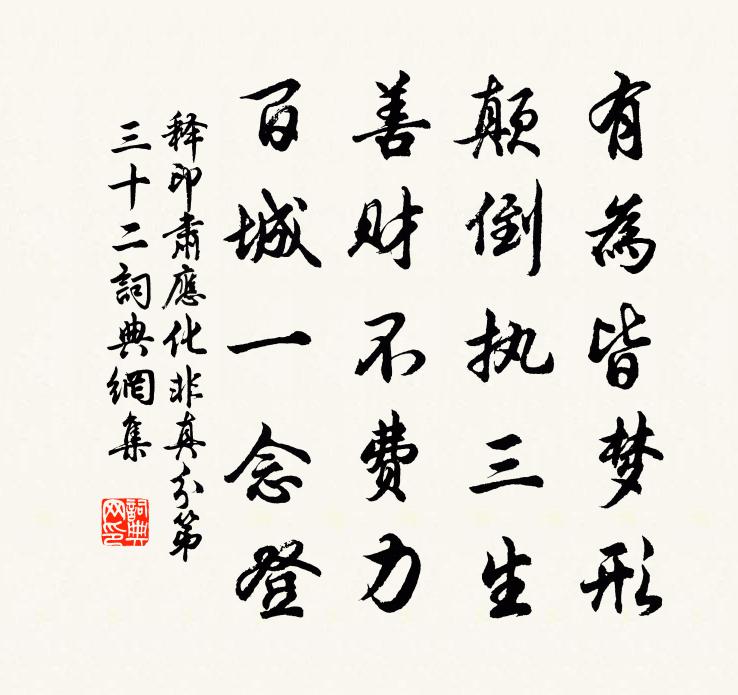 有為皆梦形
颠倒执三生
善财不费力
百城一念登
释印肃應化非真分第
三十二詞典網集
詞典
网印